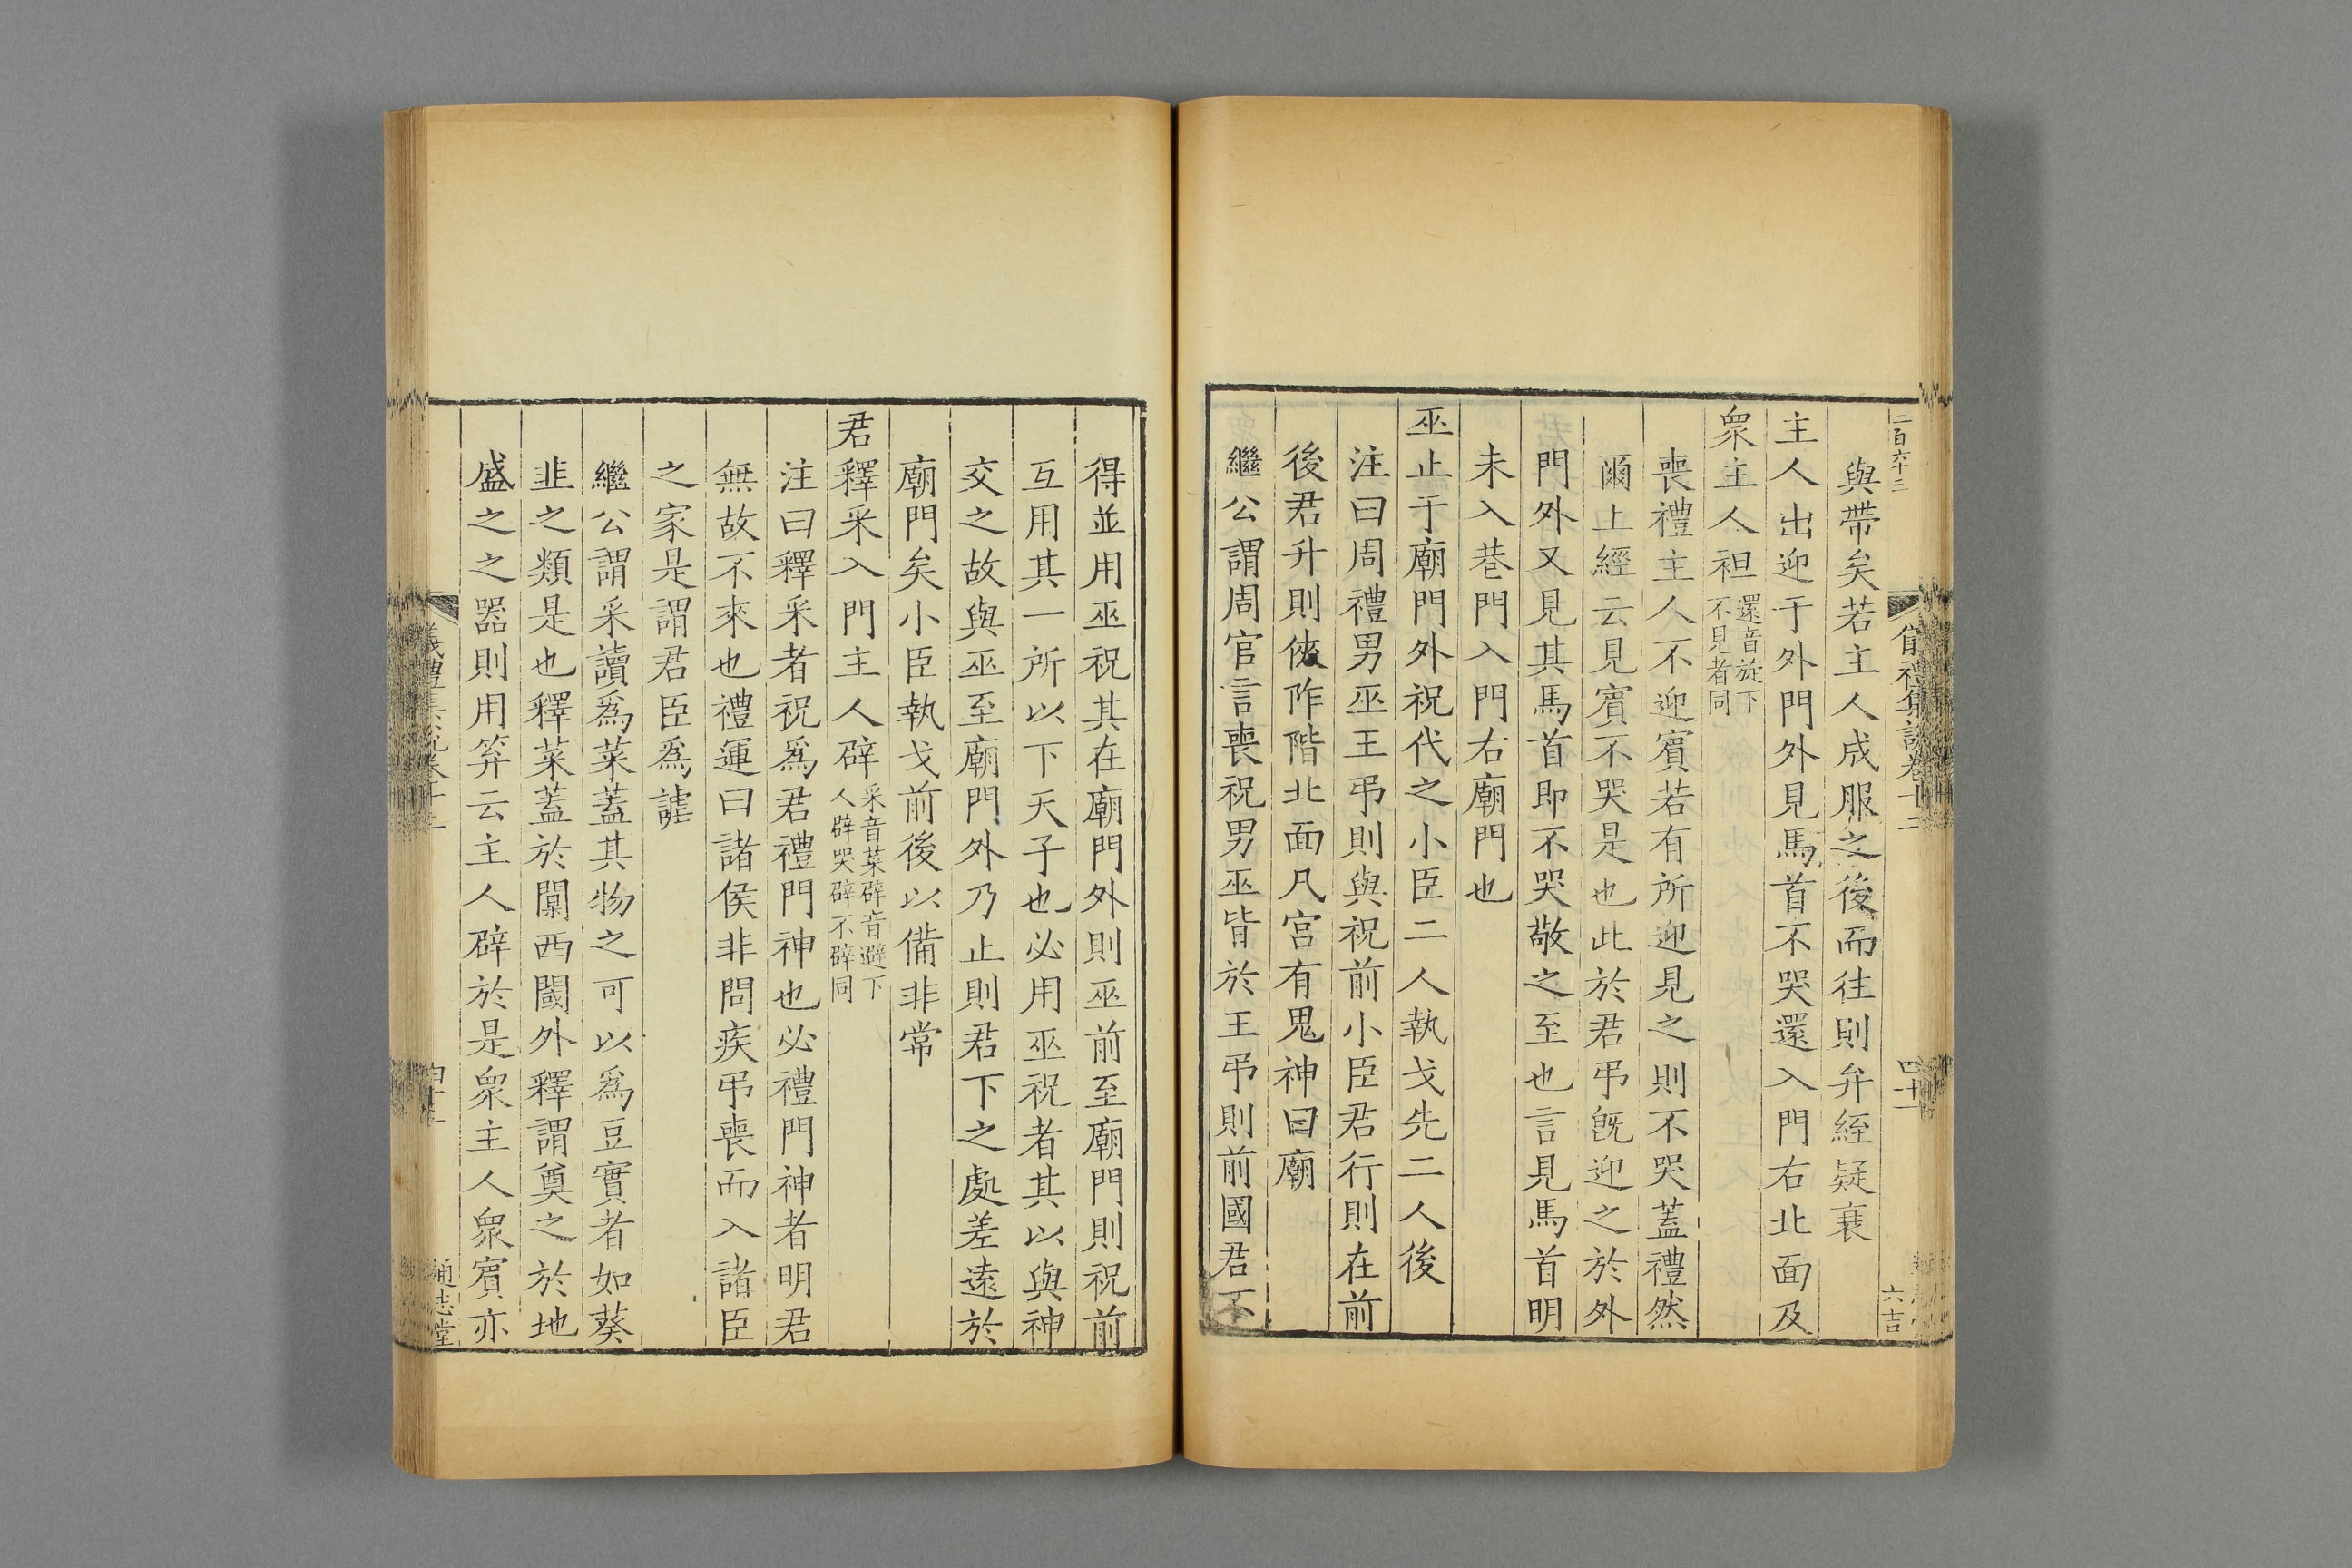 二百六十三
儀禮集說卷十二
四十二
六吉
與帶矣若主人成服之後而往則弁絰疑衰
主人出迎于外門外見馬首不哭還入門右北面及
衆主人袒還音旋下不見者同
喪禮主人不迎賔若有所迎見之則不哭蓋禮然
爾上經云見賔不哭是也此於君弔旣迎之於外
門外又見其馬首即不哭敬之至也言見馬首明
未入巷門入門右廟門也
巫止于廟門外祝代之小臣二人執戈先二人後
注曰周禮男巫王弔則與祝前小臣君行則在前
後君升則俠阼階北面凡宮有鬼神曰廟
繼公謂周官言喪祝男巫皆於王弔則前國君不
得並用巫祝其在廟門外則巫前至廟門則祝前
互用其一所以下天子也必用巫祝者其以與神
交之故與巫至廟門外乃止則君下之處差遠於
廟門矣小臣執戈前後以備非常
君釋采入門主人辟采音菜辟音避下人辟哭辟不辟同
注曰釋采者祝爲君禮門神也必禮門神者明君
無故不來也禮運曰諸侯非問疾弔喪而入諸臣
之家是謂君臣爲謔
繼公謂采讀爲菜蓋其物之可以爲豆實者如葵
韭之類是也釋菜蓋於闑西閾外釋謂奠之於地
盛之之器則用笲云主人辟於是衆主人衆賔亦
儀禮集說卷十二
通志堂